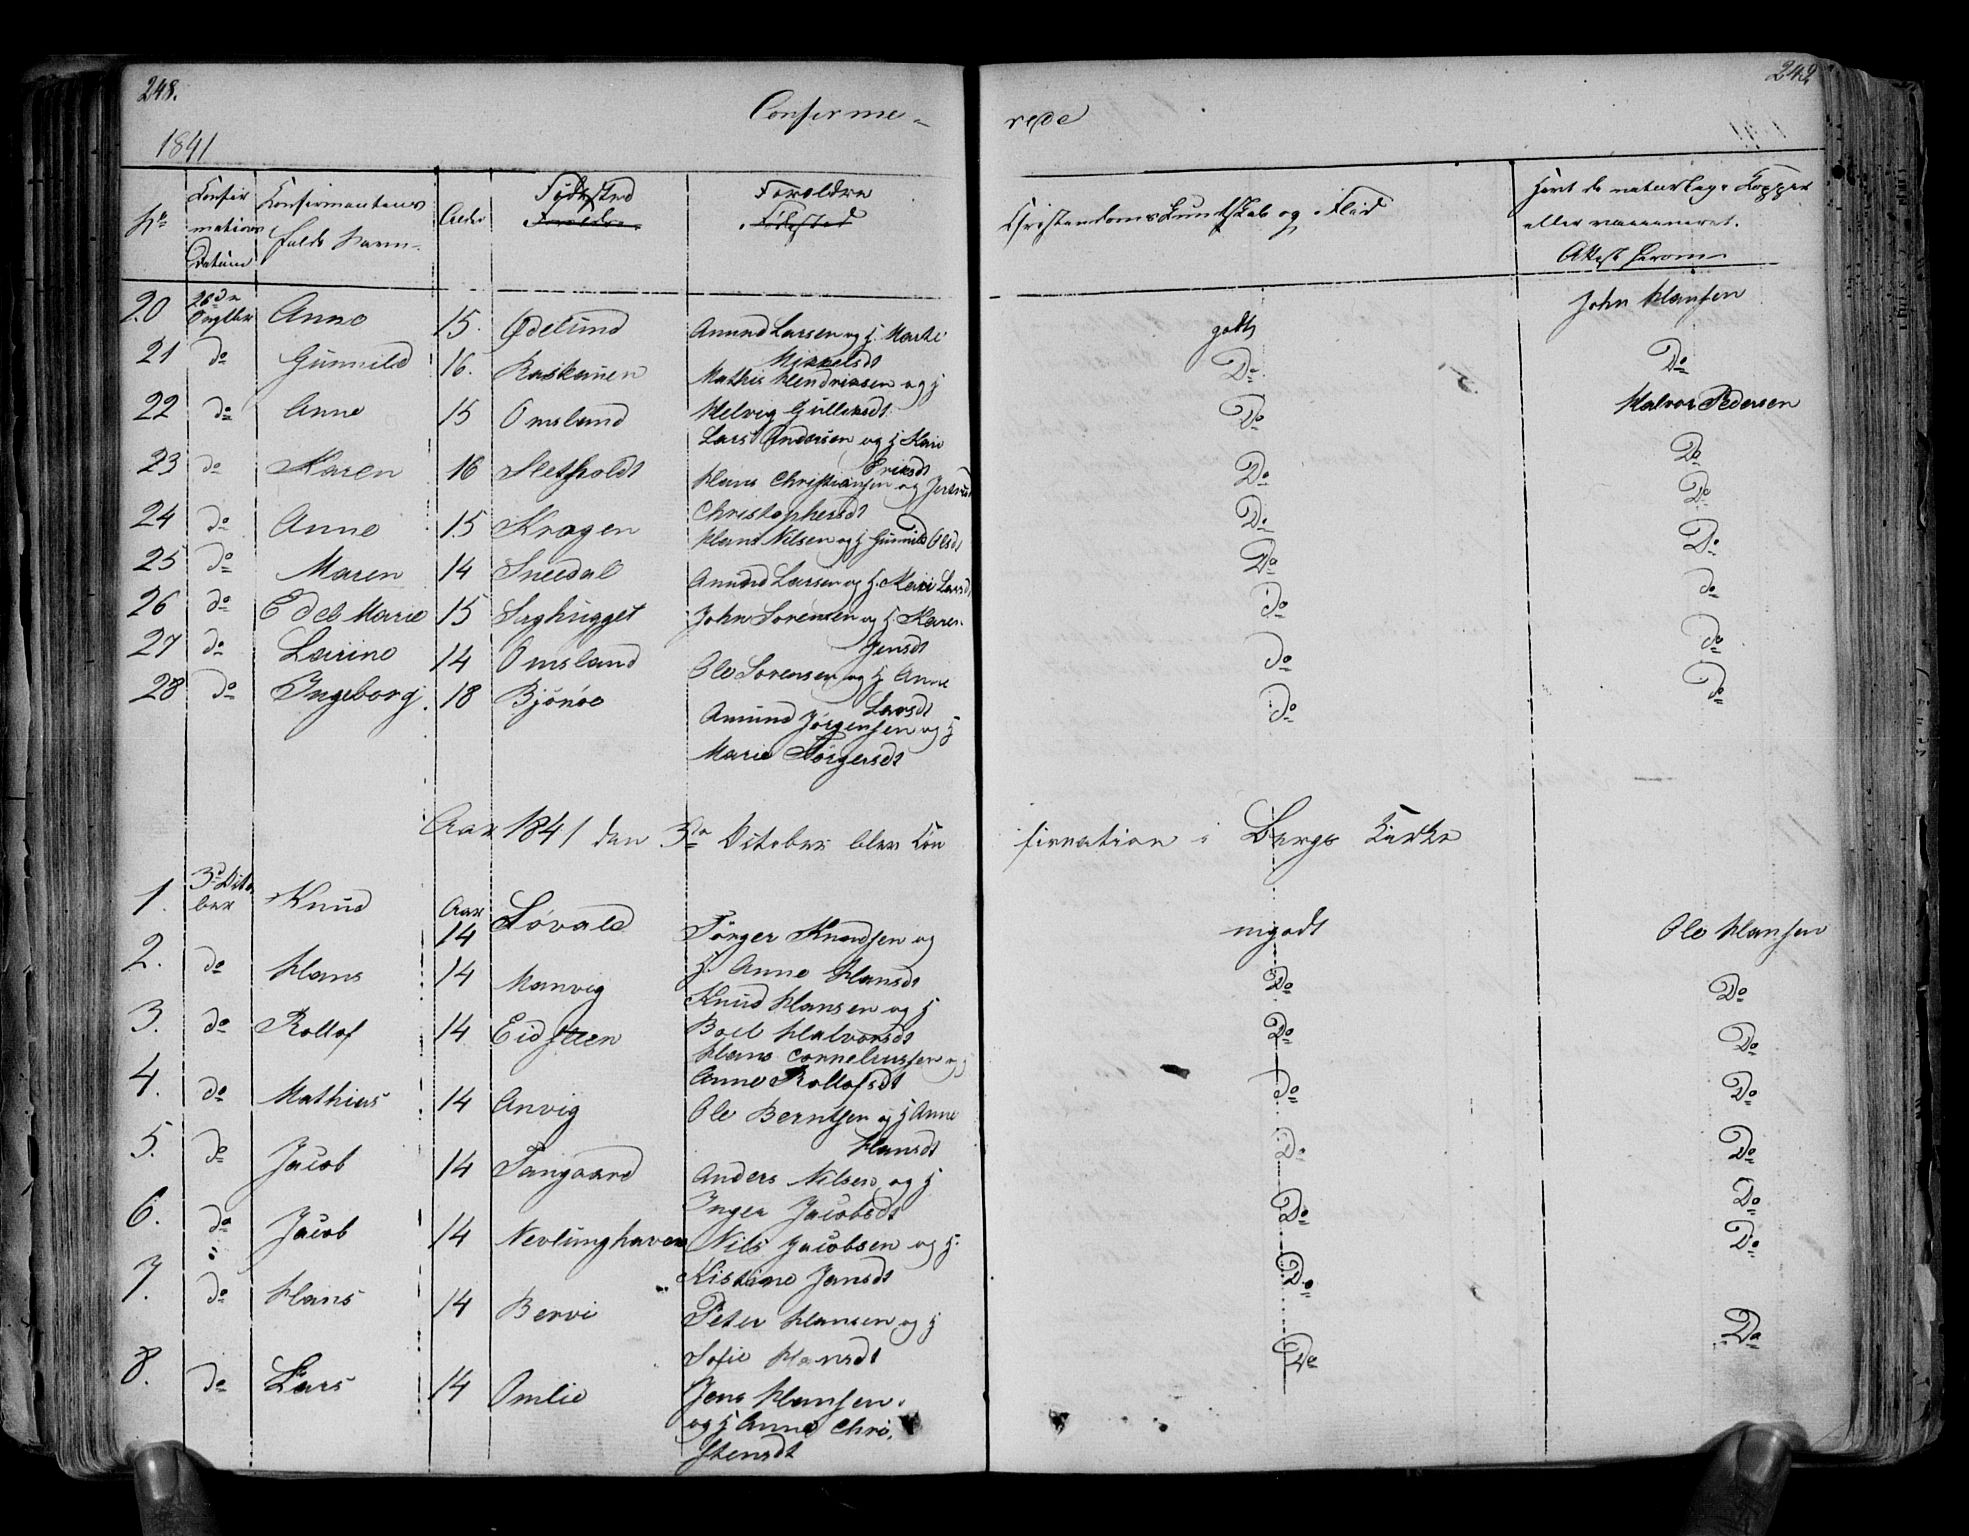 248. 242
Confirme- rede
1841
No Confir mations Datum Confirmantens fulde Navn Alder Fødested Forældre Forældre Fødested Christendoms Kundskab og Flid Havt de naturlige Kopper eller vaccineret. Attest herom
20 26de Anne 15. Ødelund Amund Larsen og H. Marthe Mikkelsdt godt John Hansen
21 do Gunnild 16. Raskauen Mathis Hendriksen og H Helvig Gulliksdt Do Do
22 do Anne 15 Omsland Lars Andersen og H Kari Eriksdt Do Halvor Pedersen
23 do Karen 16 Sletholdt Hans Christiansen og Christophersdt Do Do
24 do Anne 15 Kragen Hans Nilsen og H Gunnild Olsdt Do Do
25 do Maren 14 Sneedal Amund Larsen og H. Kari Larsdt Do Do
26 do Edel Marie 15 Saghugget John Sørensen og H. Karen Jensdt do do
27 do Larine 14 Omsland Ole Sørensen og H Anne Larsdt do do
28 do Ingeborg 18 Bjønøe Amund Jørgensen og H Marie Tørgersdt do do
Aar 1841 den 3de October blev Con firmation i Bergs Kirke
1. 3de Octo ber Knud Aar 14 Løvald Tørger Knudsen og H. Anne Hansdt mgodt Ole Hansen
2. do Hans 14 Manvig Knud Hansen og H Boel Halvorsdt Do Do
3. do Rollof 14 Eidsten Hans Corneliussen og Anne Rollofsdt Do Do
4. do Mathias 14 Anvig Ole Berntsen og H Anne Hansdt do Do
5. do Jacob 14 Tangaard Anders Nilsen og H Inger Jacobsdt Do Do
6. do Jacob 14 Nevlunghavn Nils Jacobsen og H. Kistine Jansdt Do Do
7. do Hans 14 Bervi Peter Hansen og H Sofie Hansdt Do Do
8. do Lars 14 Omlie Jens Hansen og H Anne Chri stensdt Do Do